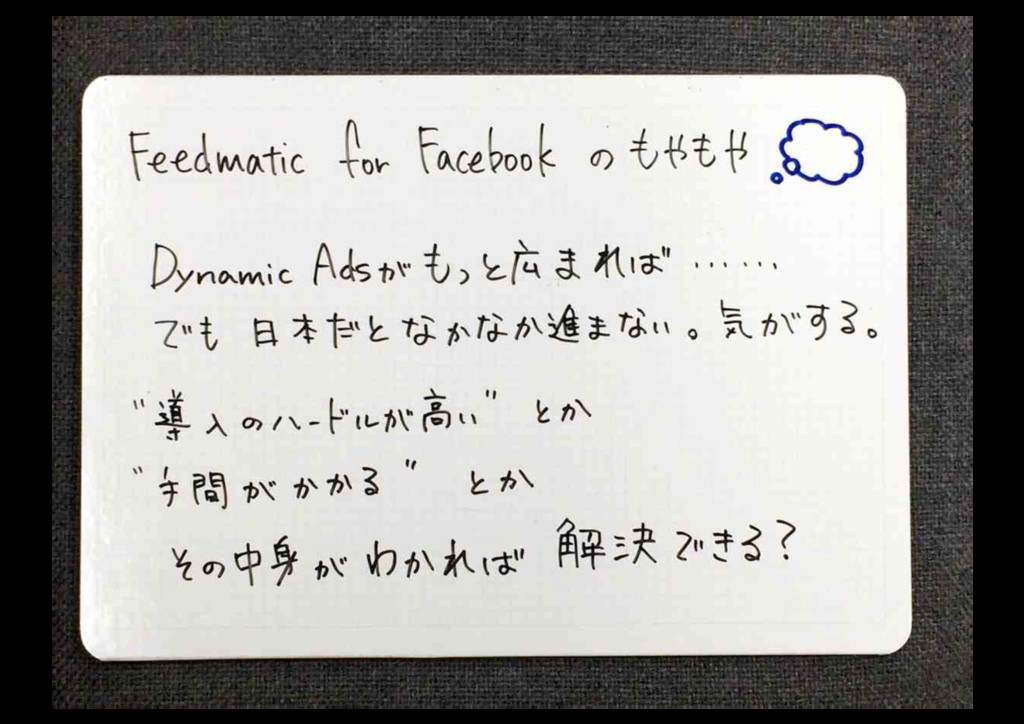 Feedmatic for Facebook のもやもや
Dynamic Adsがもっと広まれば……
でも 日本だとなかなか進まない。気がする。
"導入のハードルが高い" とか
"手間がかかる" とか
その中身がわかれば 解決できる?